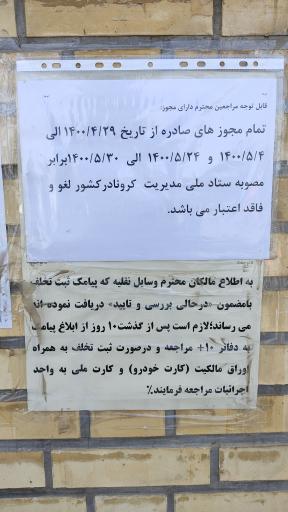 قابل توجه مراجعین محترم دارای مجوز:
تمام مجوز های صادره از تاریخ ۱۴۰۰/۴/۲۹ الی
۱۴۰۰/۵/۴ و ۱۴۰۰/۵/۲۴ الی ۱۴۰۰/۵/۳۰برابر
مصوبه ستاد ملی مدیریت کرونادرکشور لغو و
فاقد اعتبار می باشد.
به اطلاع مالکان محترم وسایل نقلیه که پیامک ثبت تخلف
بامضمون «درحالی بررسی و تایید» دریافت نموده اند
می رساند؛لازم است پس از گذشت۱۰ روز از ابلاغ پیامک
به دفاتر ۱۰+ مراجعه و درصورت ثبت تخلف به همراه
اوراق مالکیت (کارت خودرو) و کارت ملی به واحد
اجرائیات مراجعه فرمایند./